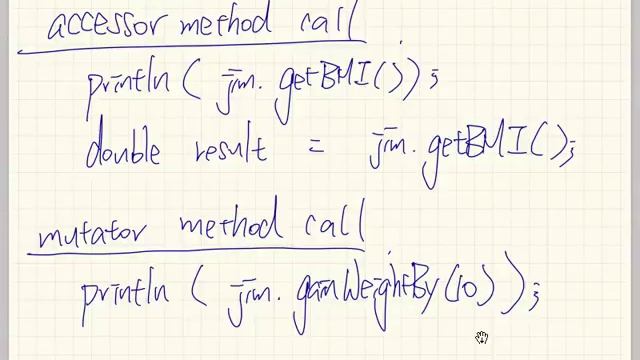 accessor method call
println ( jim. getBMI() );
double result = jim. getBMI();
mutator method call
println ( jim. gainWeightBy(10) );